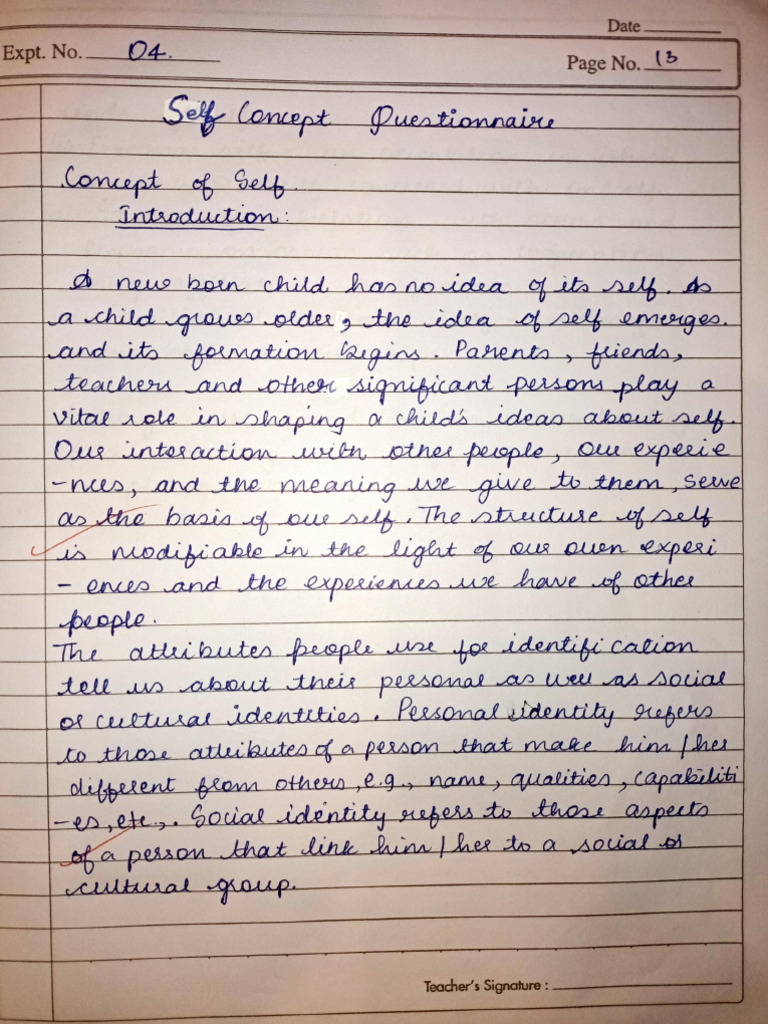 Date
Expt. No. 04.
Page No. 13
Self Concept Questionnaire
Concept of Self
Introduction:
A new born child has no idea of its self. As
a child grows older, the idea of self emerges.
and its formation begins. Parents, friends,
teachers and other significant persons play a
vital role in shaping a child's ideas about self.
Our interaction with other people, our experie
-nces, and the meaning we give to them, serve
as the basis of our self. The structure of self
is modifiable in the light of our own experi
- ences and the experiences we have of other
people.
The attributes people use for identification
tell us about their personal as well as social
or cultural identities. Personal identity refers
to those attributes of a person that make him / her
different from others, e.g., name, qualities, capabiliti
-es, etc,. Social identity refers to those aspects
of a person that link him / her to a social or
cultural group.
Teacher's Signature :